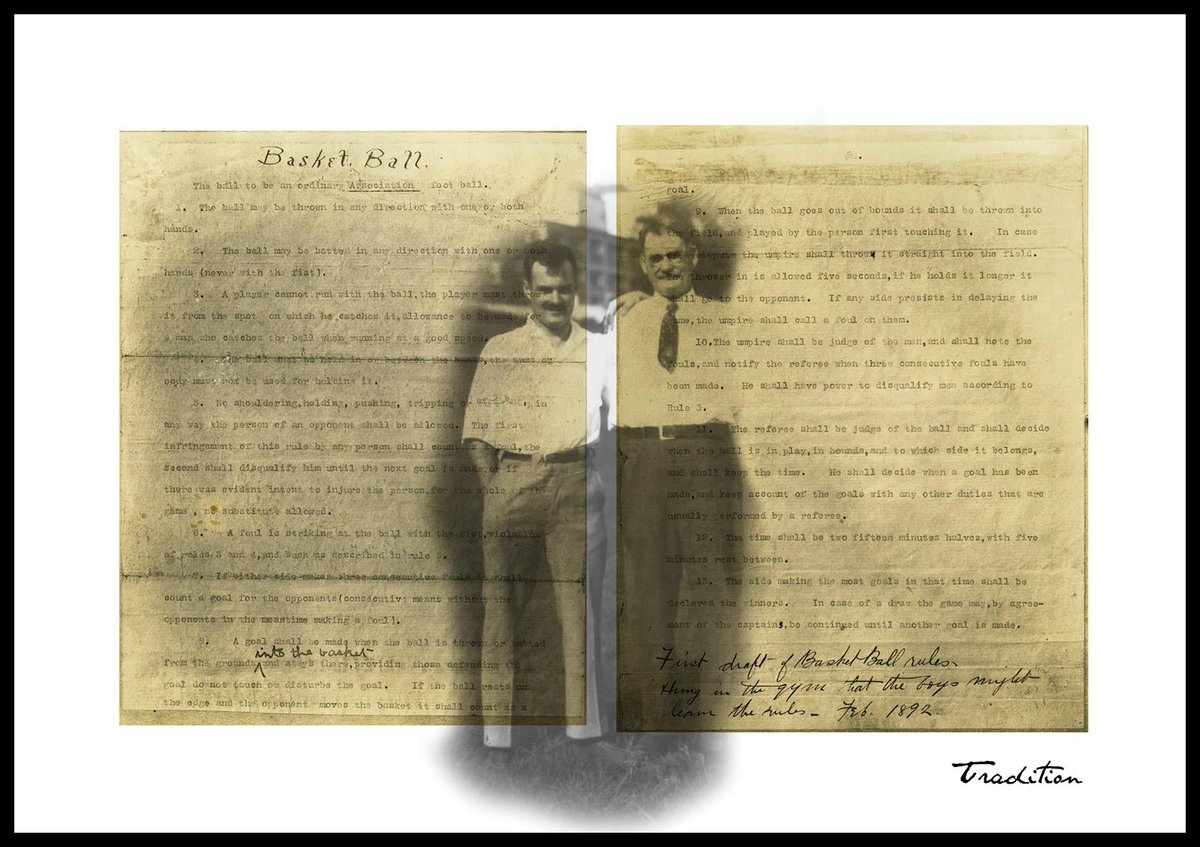 Basket Ball.
The ball to be an ordinary Association foot ball.
1. The ball may be thrown in any direction with one or both
hands.
2. The ball may be batted in any direction with one or both
hands (never with the fist).
3. A player cannot run with the ball, the player must throw
it from the spot on which he catches it, allowance to be made for
a man who catches the ball when running at a good speed.
4. The ball must be held in or between the hands, the arms or
body must not be used for holding it.
5. No shouldering, holding, pushing, tripping or striking, in
any way the person of an opponent shall be allowed. The first
infringement of this rule by any person shall count as a foul, the
second shall disqualify him until the next goal is made, or if
there was evident intent to injure the person, for the whole of the
game, no substitute allowed.
6. A foul is striking at the ball with the fist, violation
of rules 3 and 4, and such as described in rule 5.
7. If either side makes three consecutive fouls, it shall
count a goal for the opponents (consecutive means without the
opponents in the meantime making a foul).
8. A goal shall be made when the ball is thrown or batted
into the basket
from the grounds and stays there, providing those defending the
goal do not touch or disturbe the goal. If the ball rests on
the edge and the opponent moves the basket it shall count as a
goal.
9. When the ball goes out of bounds it shall be thrown into
the field, and played by the person first touching it. In case
of a dispute the umpire shall throw it straight into the field.
The thrower in is allowed five seconds, if he holds it longer it
shall go to the opponent. If any side presists in delaying the
game, the umpire shall call a foul on them.
10. The umpire shall be judge of the men, and shall note the
fouls, and notify the referee when three consecutive fouls have
been made. He shall have power to disqualify men according to
Rule 5.
11. The referee shall be judge of the ball and shall decide
when the ball is in play, in bounds, and to which side it belongs,
and shall keep the time. He shall decide when a goal has been
made, and keep account of the goals with any other duties that are
usually performed by a referee.
12. The time shall be two fifteen minutes halves, with five
minutes rest between.
13. The side making the most goals in that time shall be
declared the winners. In case of a draw the game may, by agree-
ment of the captains, be continued until another goal is made.
First draft of Basket Ball rules.
Hung in the gym that the boys might
learn the rules - Feb. 1892
Tradition